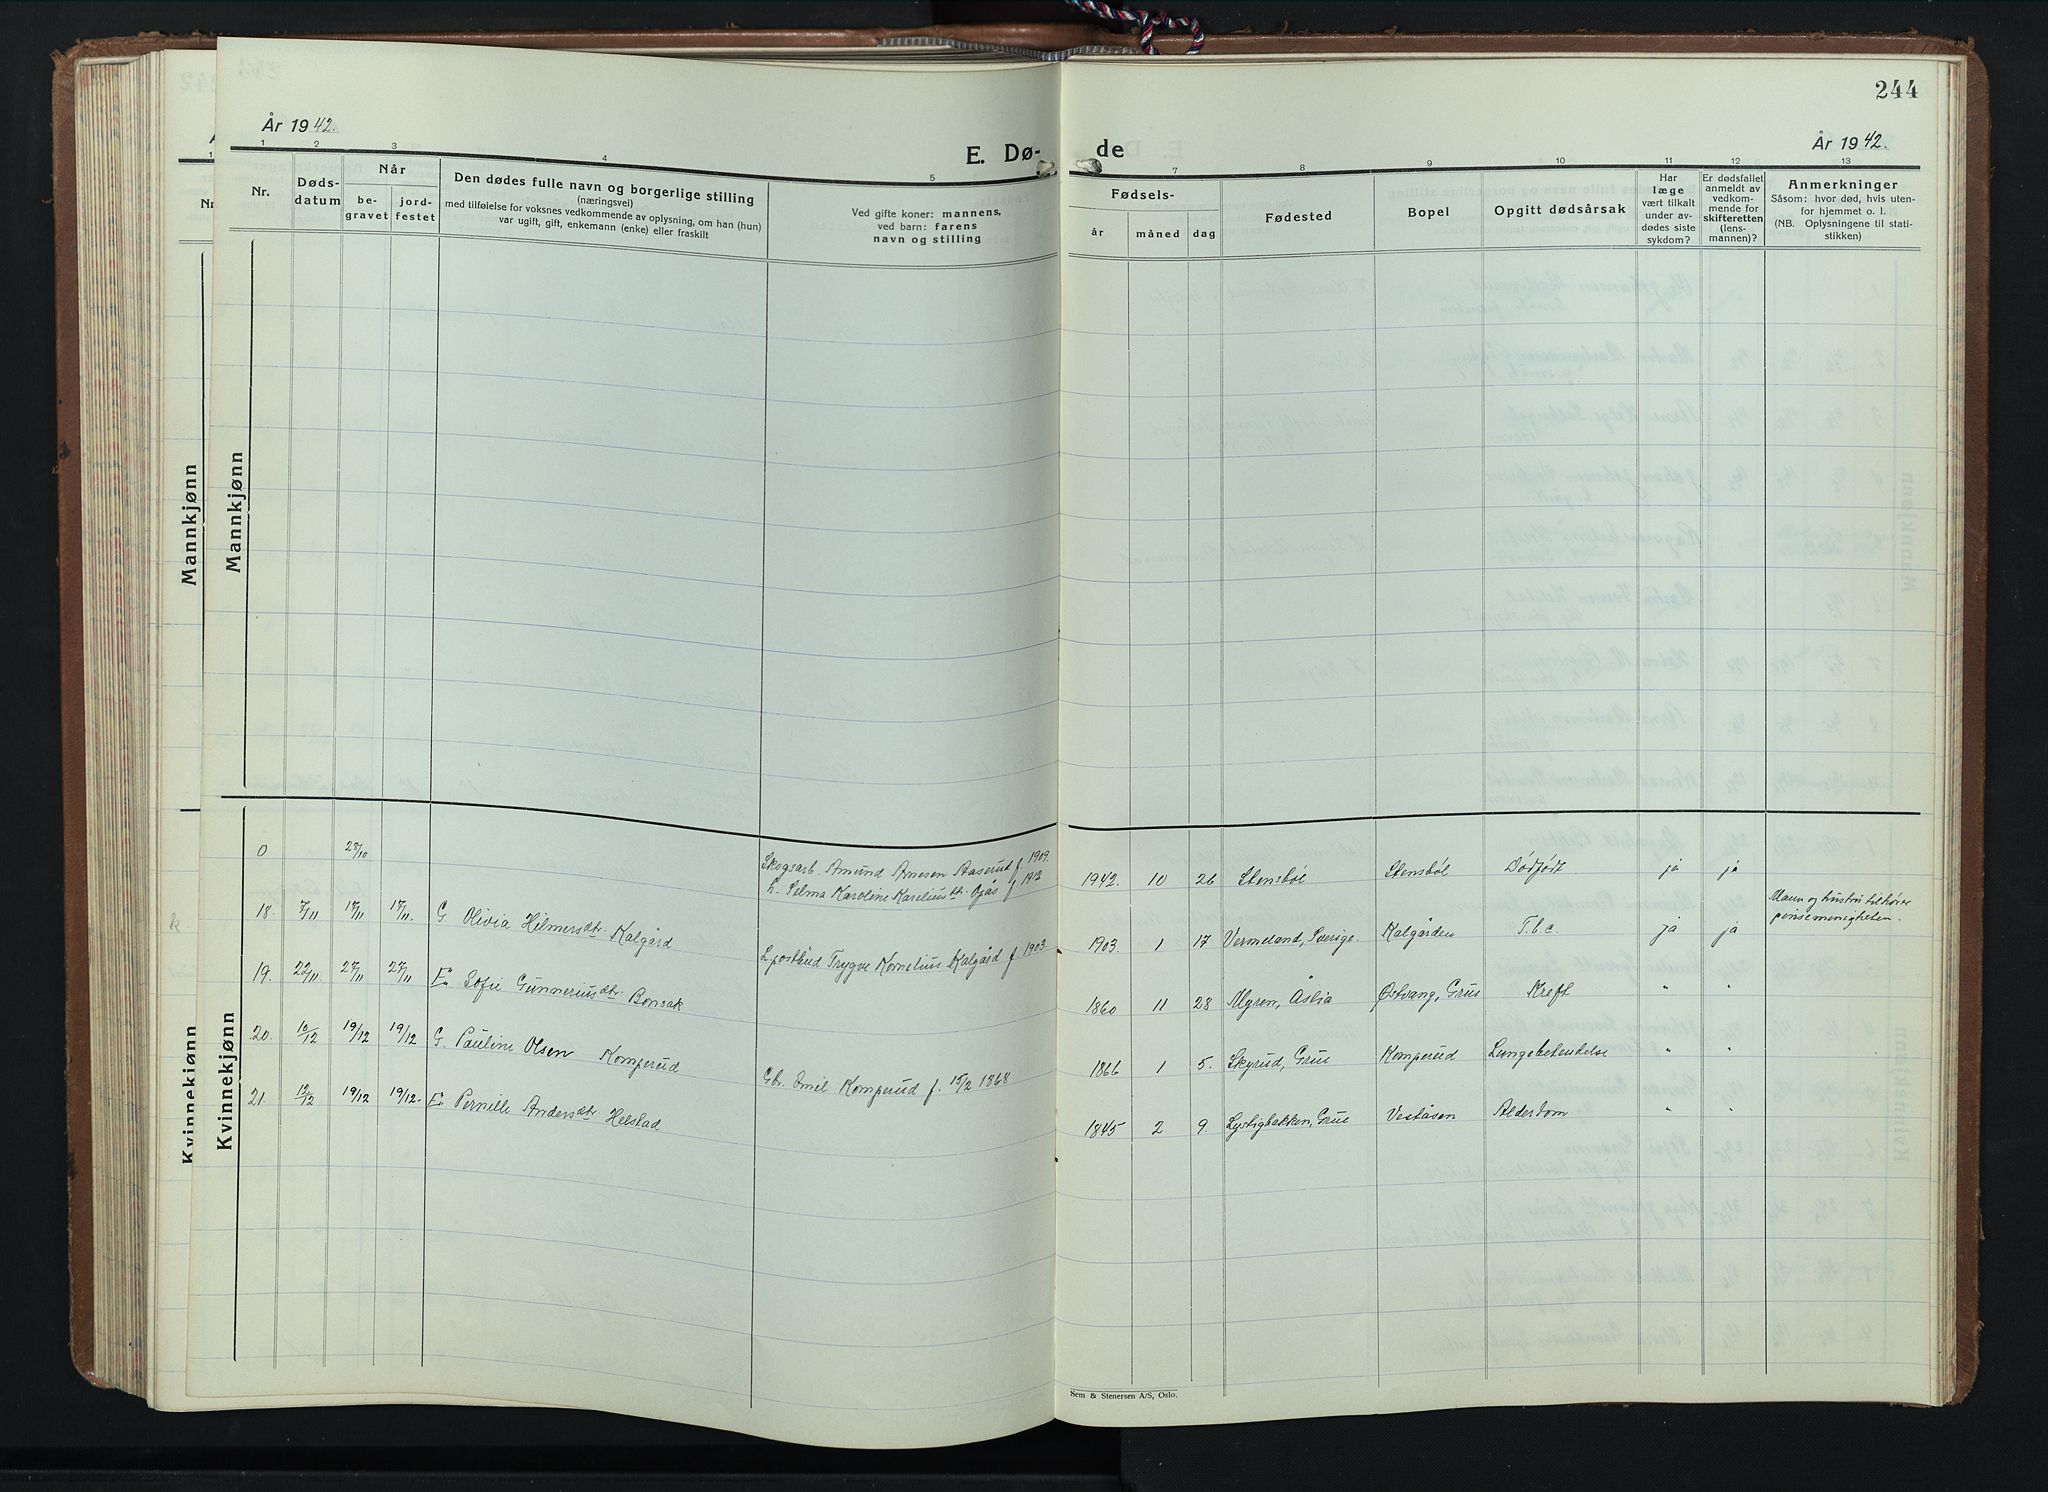 244
År 1942.
E. Dø-
de
År 1942.
1 2 3 4 5 7 8 9 10 11 12 13
Nr.
Døds-
datum
Når
be-
gravet
jord-
festet
Den dødes fulle navn og borgerlige stilling
(næringsvei)
med tilføielse for voksnes vedkommende av oplysning, om han (hun)
var ugift, gift, enkemann (enke) eller fraskilt
Ved gifte koner: mannens,
ved barn: farens
navn og stilling
Fødsels-
år måned dag
Fødested
Bopel
Opgitt dødsårsak
Har
læge
vært tilkalt
under av-
dødes siste
sykdom?
Er dødsfallet
anmeldt av
vedkom-
mende for
skifteretten
(lens-
mannen)?
Anmerkninger
Såsom: hvor død, hvis uten-
for hjemmet o. l.
(NB. Oplysningene til stati-
stikken)
Nr
Mannkjønn
Mannkjønn
Kvinnekjønn
Kvinnekjønn
k
0 Skogsarb. Amund Arnesen Aaserud f 1909.
h. Selma Karoline Kareliusdtr. Ojås f 1912
1942. 10 26 Stensbøl Stensbøl Dødfødt ja ja
Mann og hustru tilhører
pinsemenigheten.
18. 7/11 17/11 17/11. G Olivia Hilmersdtr. Kalgård
Lpostbud Trygve Kornelius Kalgård f 1903.
1903. 1 17 Vermeland, Sverige. Kalgården T.b.c. ja ja
19. 22/11. 27/11 27/11 En Sofie Gunneriusdtr. Bonsak
1860 11 28 Myren, Åslia Østvang, Grue Kreft " "
20. 10/12 19/12 19/12 G. Pauline Olsen Komperud
Gbr. Emil Komperud f. 15/2 1868
1866 1 5. Skyrud, Grue Komperud Lungebetendelse " "
21. 12/12 19/12 19/12. En Pernille Andersdtr. Helstad
1845 2 9. Lystigbakken, Grue Veståsen Alderdom " "
Sem & Stenersen A/S, Oslo.